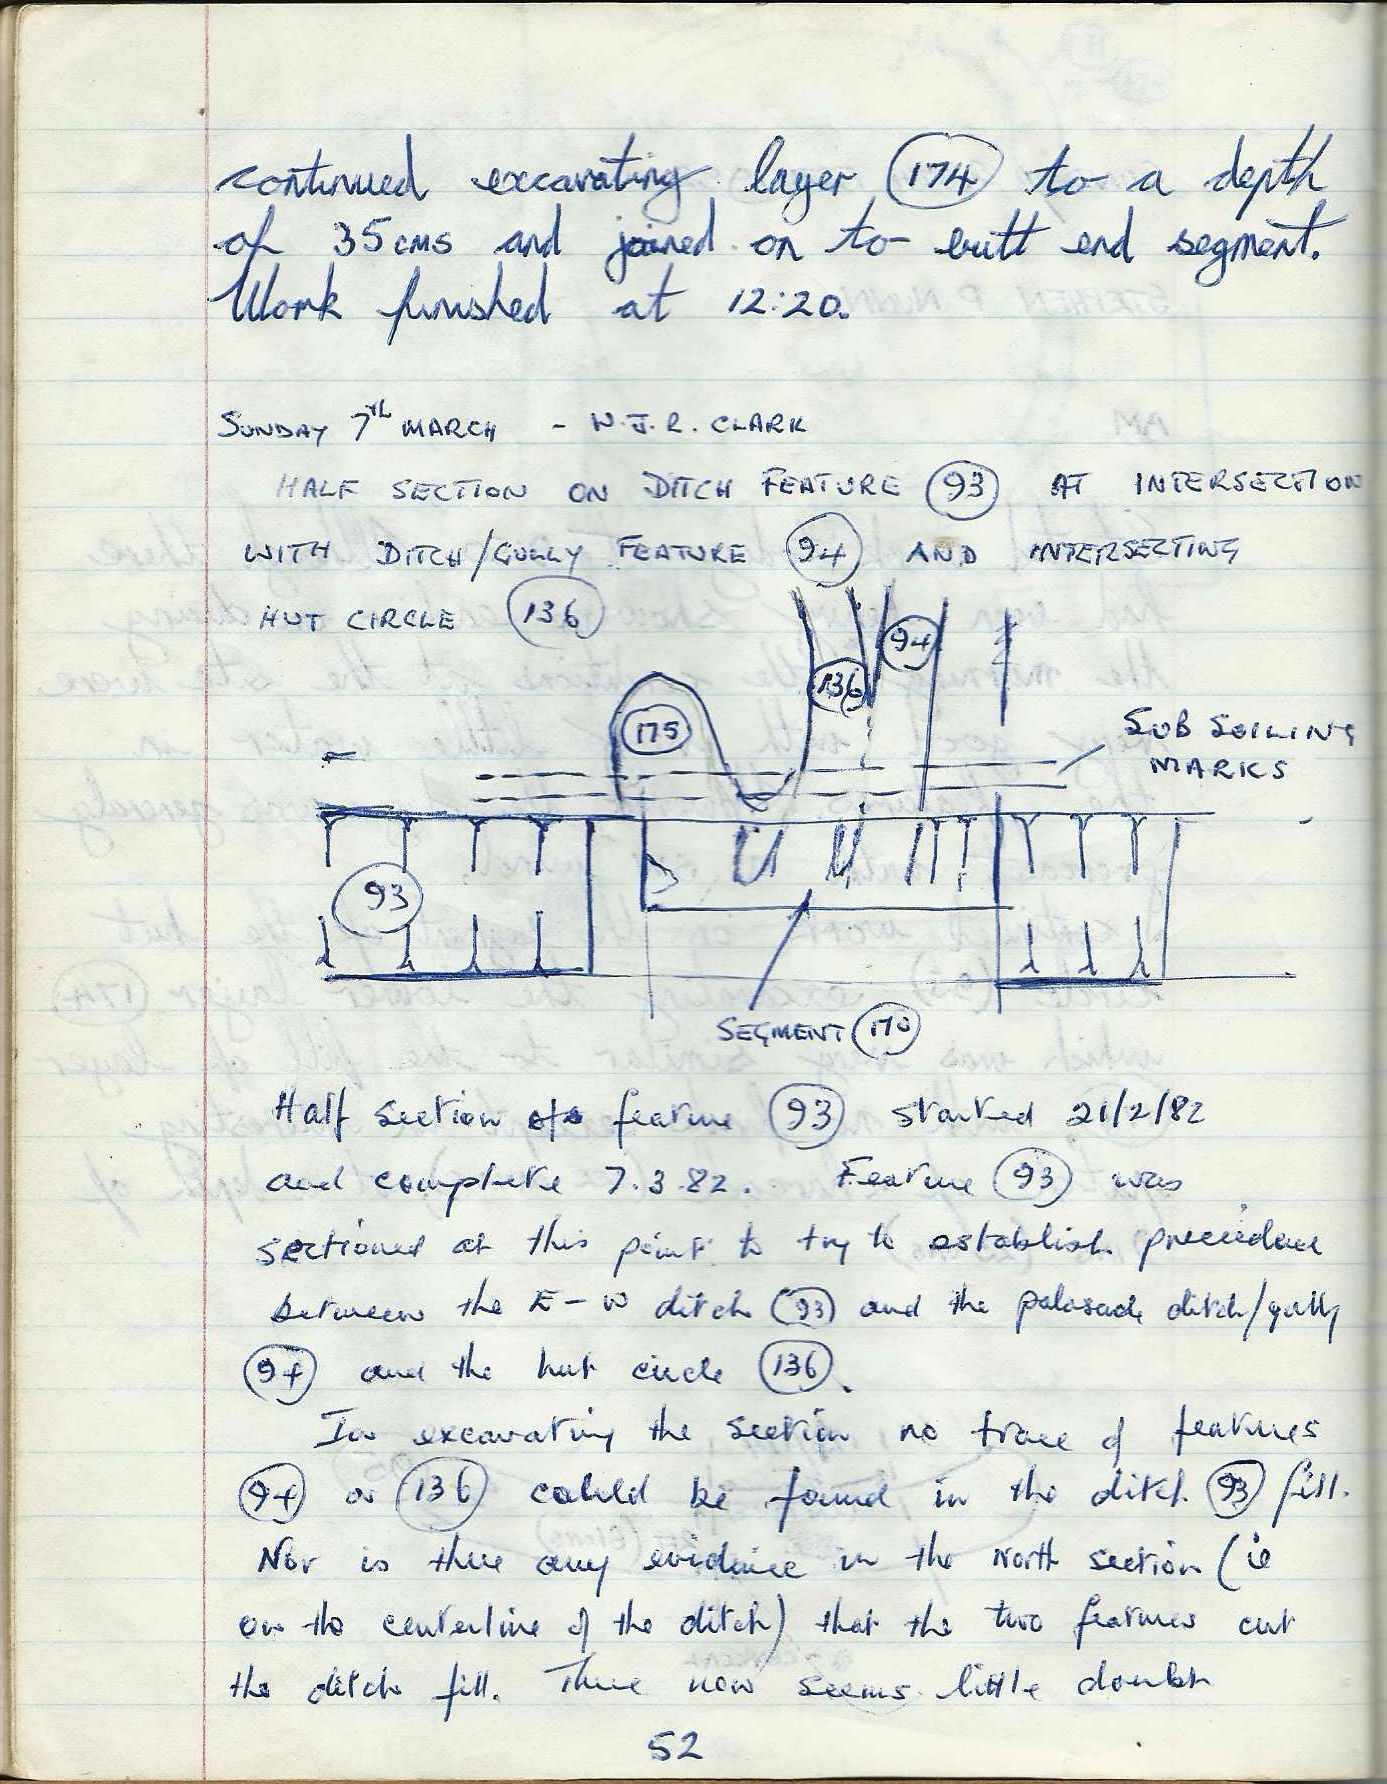 continued excavating layer 174 to a depth
of 35cms and joined on to butt end segment.
Work finished at 12:20.
SUNDAY 7TH MARCH - N.J.R. CLARK
HALF SECTION ON DITCH FEATURE 93 AT INTERSECTION
WITH DITCH/GULLY FEATURE 94 AND INTERSECTING
HUT CIRCLE 136
94
136
175
SUB SOILING
MARKS
93
SEGMENT 170
Half section of feature 93 started 21/2/82
and complete 7.3.82. Feature 93 was
sectioned at this point to try to establish
between the E-W ditch 93 and the palasade ditch/gully
94 and the hut circle 136.
In excavating the section no trace of features
94 or 136 could be found in the ditch 93 fill.
Nor is there any evidence in the North section (ie
on the centerline of the ditch) that the two features cut
the ditch fill. There now seems little doubt
52